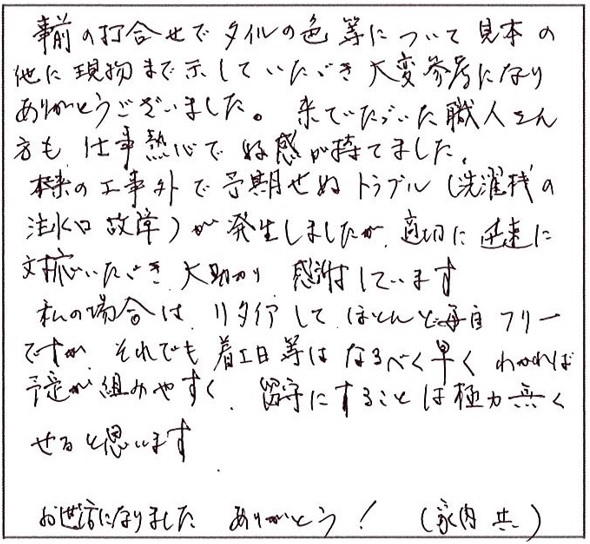 事前の打合せでタイルの色等について見本の
他に現物まで示していただき大変参考になり
ありがとうございました。来ていただいた職人さん
方も仕事熱心で好感が持てました。
本来の工事外で予期せぬトラブル(洗濯機の
注水口故障)が発生しましたが、適切に迅速に
対応いただき、大助かり 感謝しています
私の場合は、リタイアしてほとんど毎日フリー
ですが、それでも着工日等はなるべく早くわかれば
予定が組みやすく、留守にすることは極力無く
せると思います
お世話になりました ありがとう! (家内共)